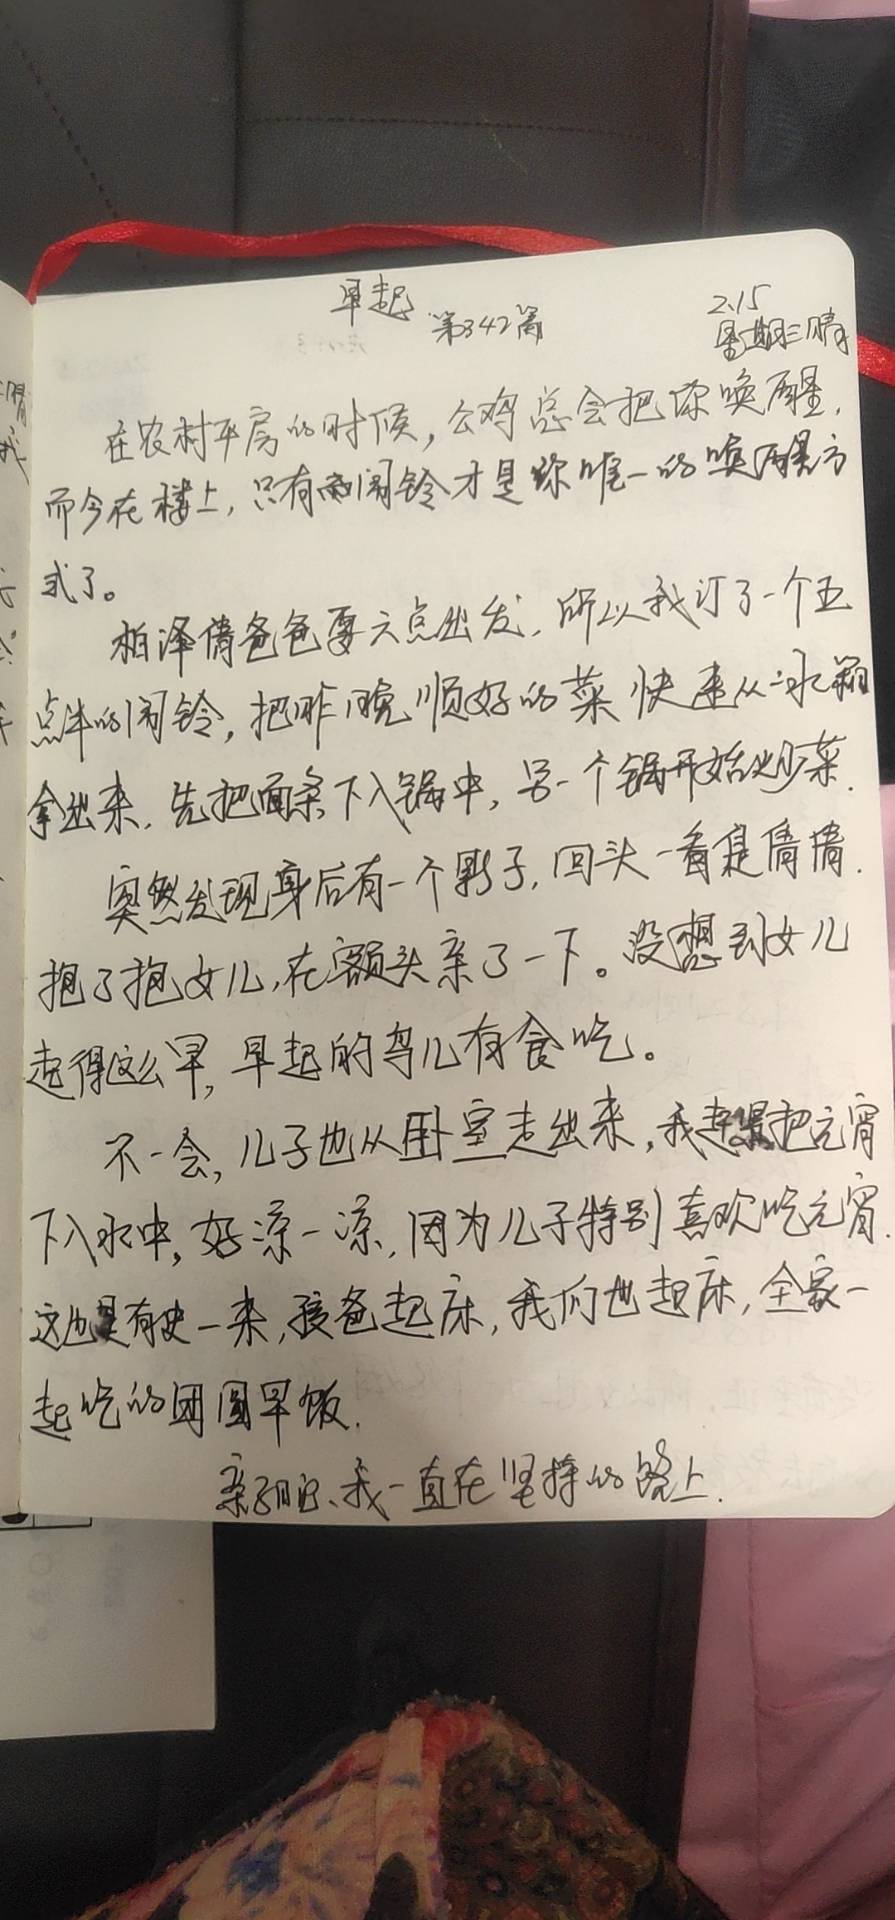 早起
第342篇
2.15
星期三晴
在农村平房的时候，公鸡总会把你唤醒，
而今在楼上，只有闹铃才是你唯一的唤醒方
式了。
柏泽倩爸爸要六点出发，所以我订了一个五
点半的闹铃，把昨晚顺好的菜快速从冰箱
拿出来，先把面条下入锅中，另一个锅开始炒菜.
突然发现身后有一个影子，回头一看是倩倩.
抱了抱女儿，在额头亲了一下。没想到女儿
起得这么早，早起的鸟儿有食吃。
不一会，儿子也从卧室走出来，我赶紧把元宵
下入水中，好凉一凉，因为儿子特别喜欢吃元宵.
这也是有史一来，孩爸起床，我们也起床，全家一
起吃的团圆早饭.
亲子日记、我一直在坚持的路上.